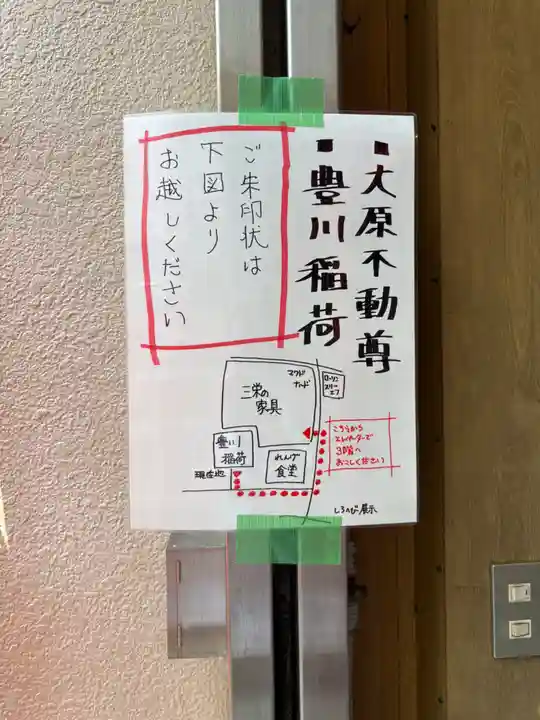 ▪大原不動尊
▪豊川稲荷
ご朱印状は
下図より
お越しください
マクド
ナルド
ローソン
スリー
エフ
三栄の
家具
豊川
稲荷
れんげ
食堂
現在地
こちらから
エレベーターで
3階へ
おこしください
しろへび展示